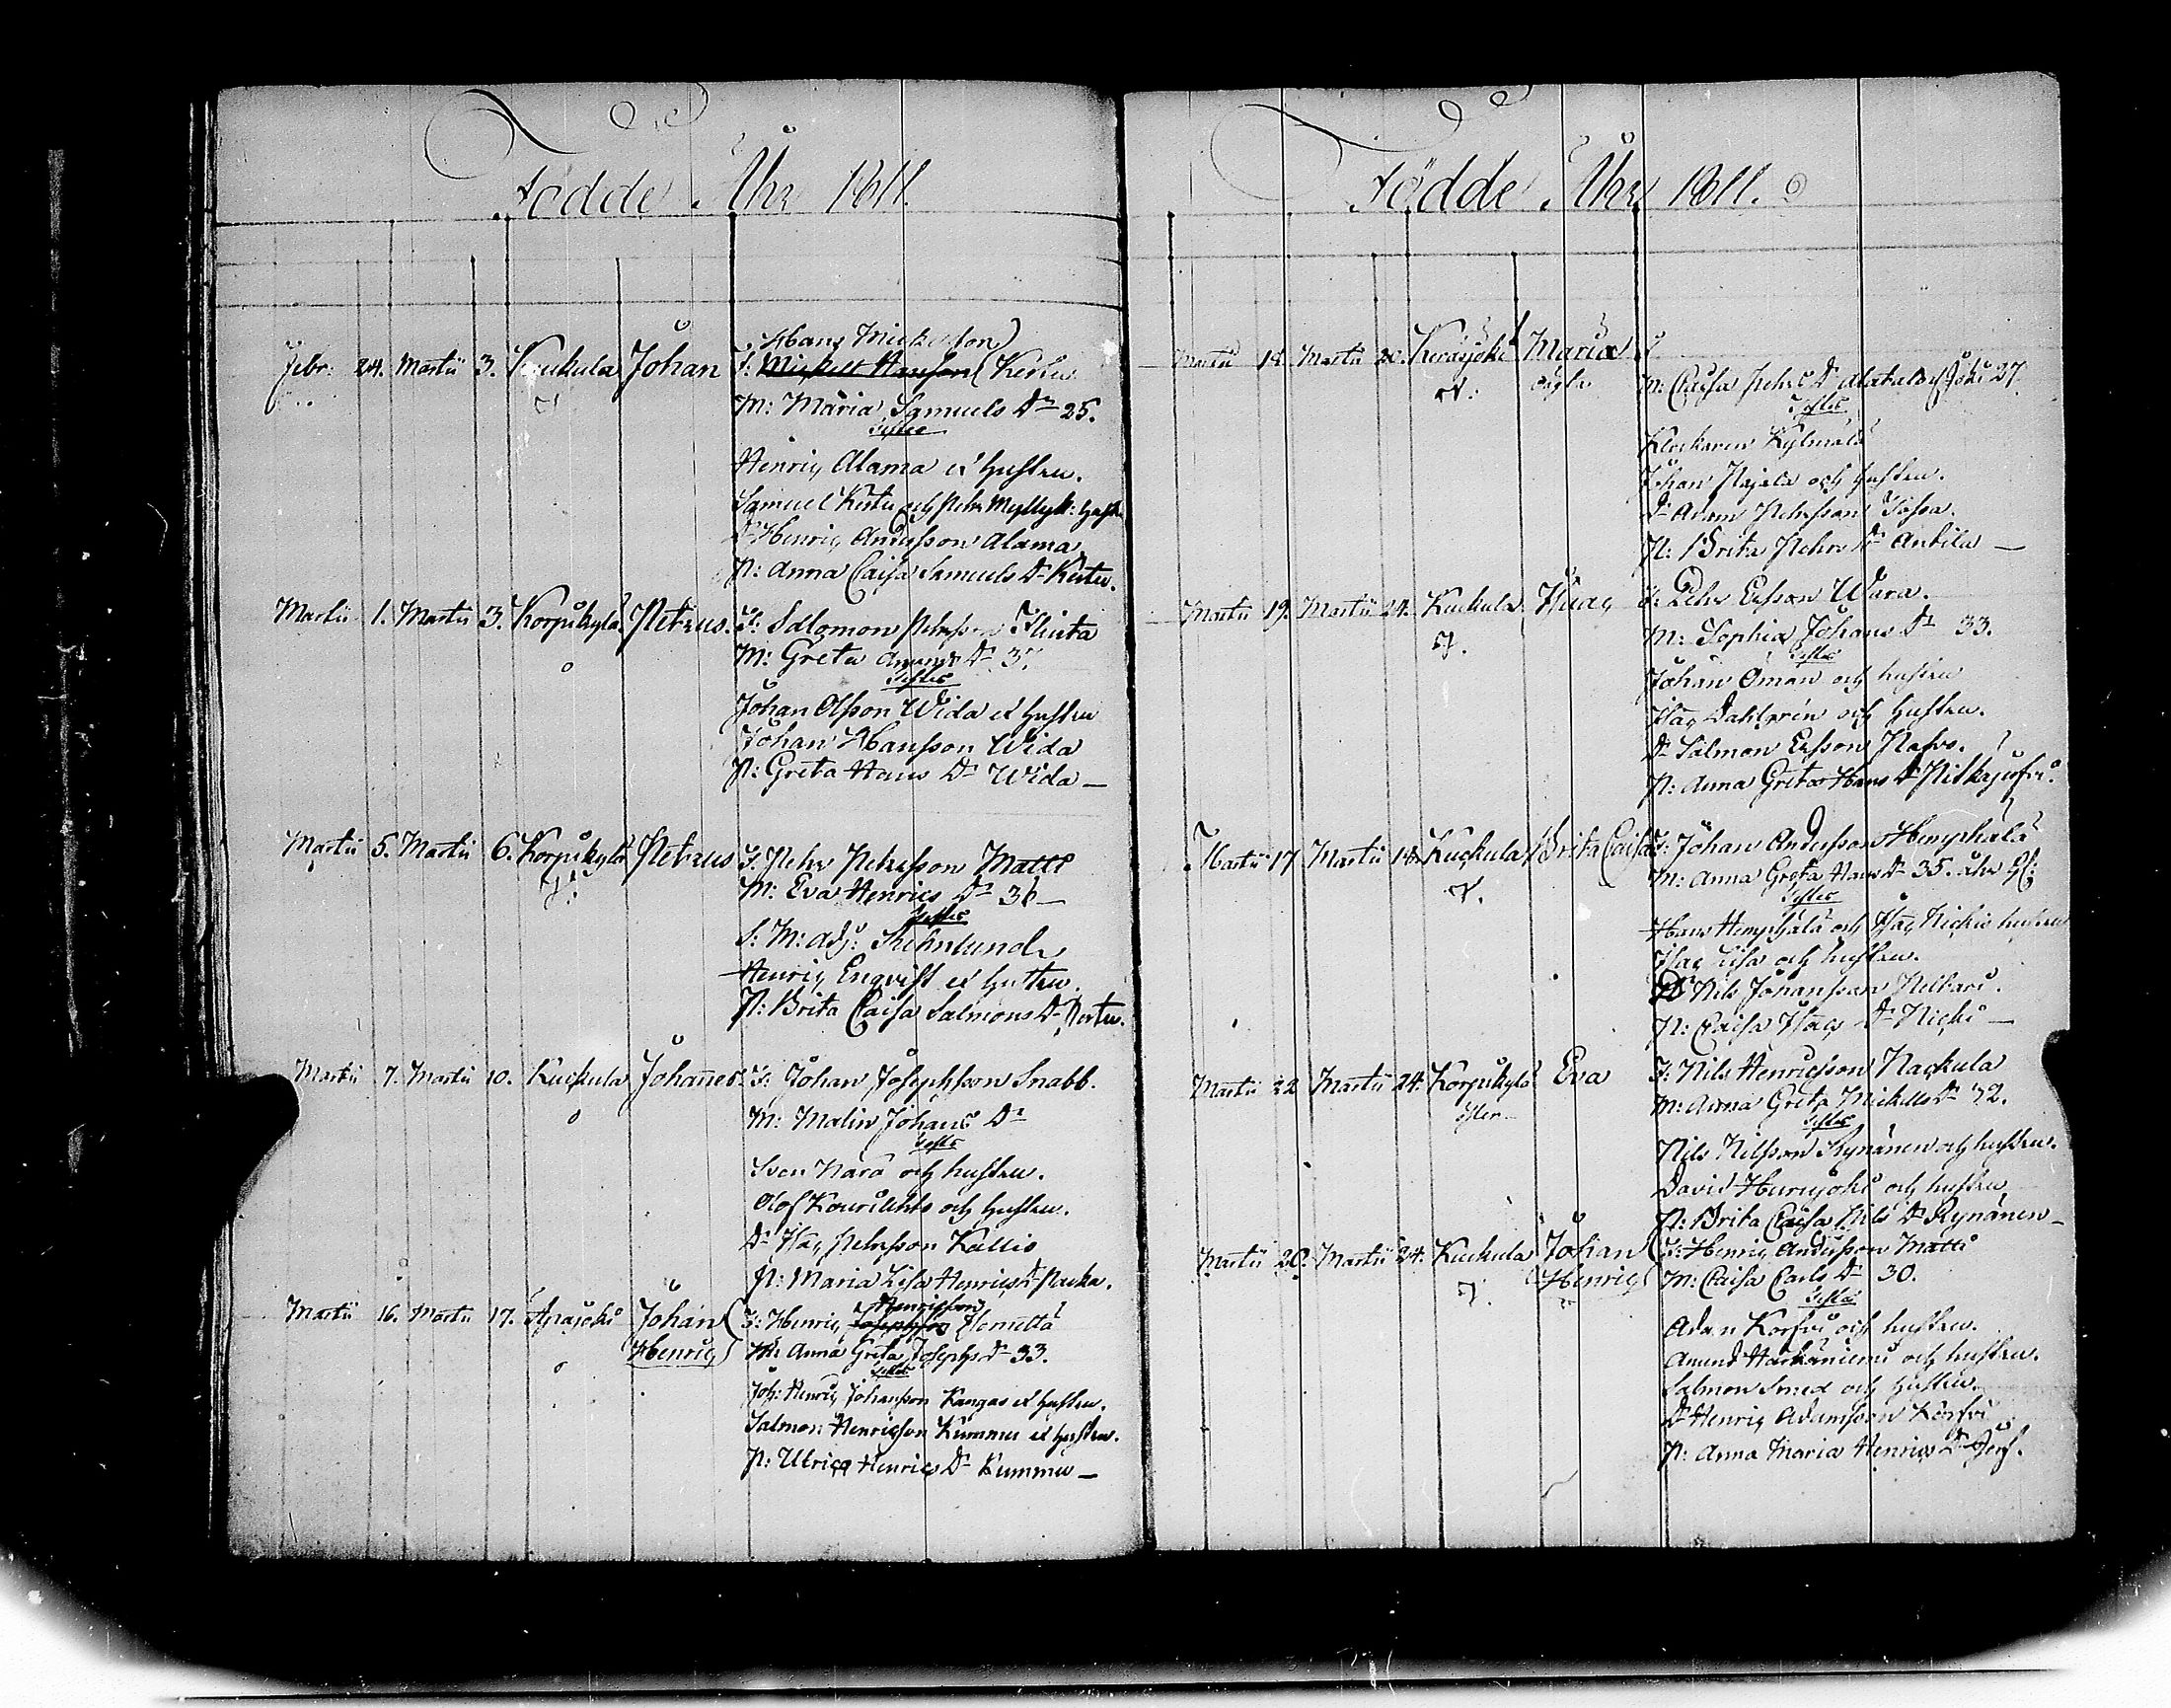 Födde Åhr 1811.
Febr: 24. Martii 3. Kuckula Johan
Hans Mickelson
F: Mickell Hansson Kertu
M: Maria Samuels Dr 25.
Testes
Henric Alama et hustru.
Samuel Kertu och Pehr Myllyk: hust
Dr Henric Andersson Alama
P: Anna Caisa Samuels Dr Kertu.
Martii 1. Martii 3. Korpikylä Petrus. F: Salomon Pehrsson Flinta
M: Greta Amunds Dr 37.
Testes
Johan Olsson Wida et hustru
Johan Hansson Wida
P: Greta Hans Dr Wida —
Martii 5. Martii 6. Korpikylä Petrus F: Pehr Pehrsson Matti
M: Eva Henrics Dr 36 —
Testes
S: M: Adj:
Henric Engvist et hustru.
P: Brita Caisa Salmons Dr
Martii 7. Martii 10. Kuckula Johannes. F: Johan Josephsson Snabb.
M: Malin Johans Dr
Testes
Sven Nara och hustru.
Olof Kourilehto och hustru.
Dr Isac Pehrsson Kallio
P: Maria Lisa Henrics Dr
Martii 16. Martii 17. Apajoki Johan Henric
Henricsson
F: Henric Josephsson
M: Anna Greta Josephs Dr 33.
Testes
Joh: Henric Johansson Kangas et hustru.
Salmon Henricson Kummu et hustru.
P: Ulrica Henrics Dr Kummu —
Födde Åhr 1811.
Martii 18. Martii 20. Keräsjoki Maria
F
M: Caisa Pehrs Dr Alatalo 27.
Testes
Klockaren Kylmälä
Johan Pajala och hustru.
Dr Adam Pehrsson
P: Brita Pehrs Dr Antila —
Martii 19. Martii 24. Kuckula Isac F: Pehr Ersson Wara.
M: Sophia Johans Dr 33.
Testes
Johan Öman och hustru
Isac Dahlgrén och hustru.
Dr Salmon Ersson
P: Anna Greta Hans Dr Pitkäjärfvi.
Martii 17. Martii 18. Kuckula Brita Caisa F: Johan Andersson Hemphälä
M: Anna Greta Hans Dr 35. åhr
Testes
Hans Hemphälä och Isac Nickis hustru
Isac Lisa och hustru.
Dr Nils Johansson
P: Caisa Isacs Dr Nicki —
Martii 22. Martii 24. Korpikylä Eva F: Nils Henricsson Nackula
M: Anna Greta Mickells Dr 32.
Testes
Nils Nilsson Rynänen och hustru.
David Hurujoki och hustru
P: Brita Caisa Nils Dr Rynänen —
Martii 20. Martii 24. Kuckula Johan Henric F: Henric Andersson Matti
M: Caisa Carls Dr 30.
Testes
Adam Korfvi och hustru.
Amund Harkäniemi och hustru.
Salmon Smed och hustru.
Dr Henric Adamsson Korfvi
P: Anna Maria Henrics Dr